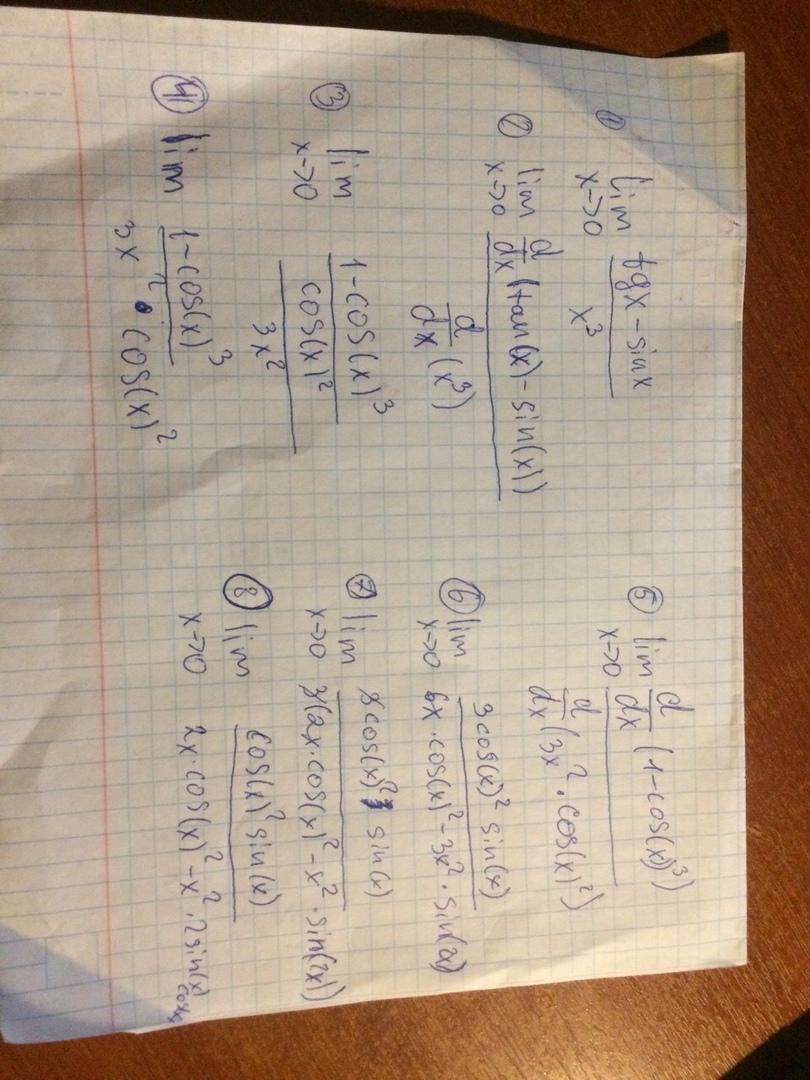 ① lim x→0 (tgx - sinx) / x³
② lim x→0 d/dx (tan(x) - sin(x)) / d/dx (x³)
③ lim x→0 ((1 - cos(x)³) / cos(x)²) / 3x²
④ lim (1 - cos(x)³) / 3x² · cos(x)²
⑤ lim x→0 d/dx (1 - cos(x)³) / d/dx (3x² · cos(x)²)
⑥ lim x→0 3cos(x)² sin(x) / 6x · cos(x)² - 3x² · sin(2x)
⑦ lim x→0 3cos(x)² sin(x) / 3(2x · cos(x)² - x² · sin(2x))
⑧ lim x→0 cos(x)² sin(x) / 2x · cos(x)² - x² · 2sin(x) cos(x)